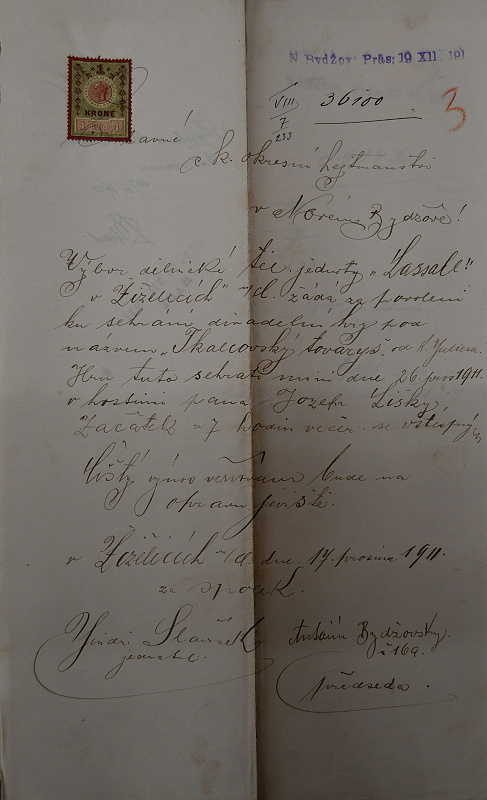 N. Bydžov: Präs: 19 XII. 191
1
KRONE
VIII
7
233
36100
3
Slavné
c. k. okresní hejtmanství
v Novém Bydžově!
Výbor dělnické těl. jednoty „Lassall"
v Žiželicích n/C. žádá za povolení
ku sehrání divadelní hry pod
názvem „Tkalcovský tovaryš", od K.
Hru tuto sehráti míní dne 26. pros 1911.
v hostinci pana Jozefa Lišky.
Začátek v 7 hodin večer se vstupným
Čistý výnos věnován bude na
opravu jeviště.
v Žiželicích n/C. dne, 17. prosince 1911.
za spolek.
Jindř.
jednatel.
Antonín Bydžovsky.
č 169.
předseda.